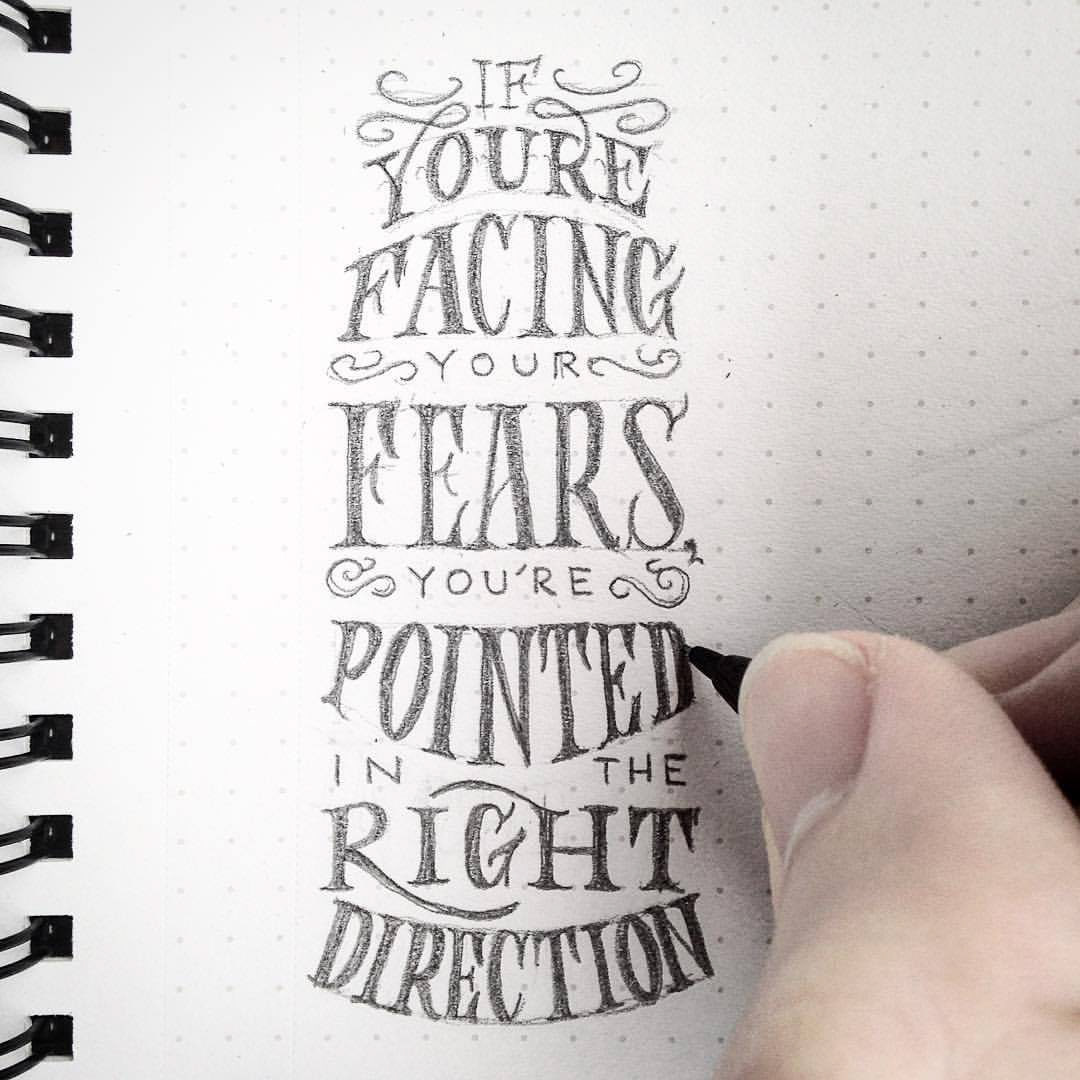 IF
YOURE
FACING
YOUR
FEARS,
YOU'RE
POINTED
IN THE
RIGHT
DIRECTION